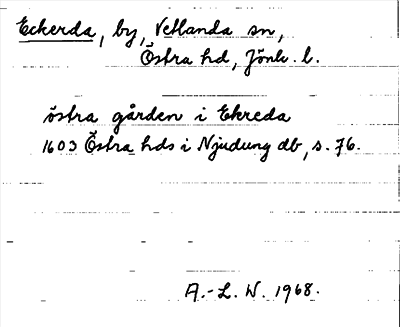 Eckerda, by, Vetlanda sn,
Östra hd, Jönk. l.
östra gården i Ekreda
1603 Östra hds i Njudung db, s. 76.
A.-L. W. 1968.